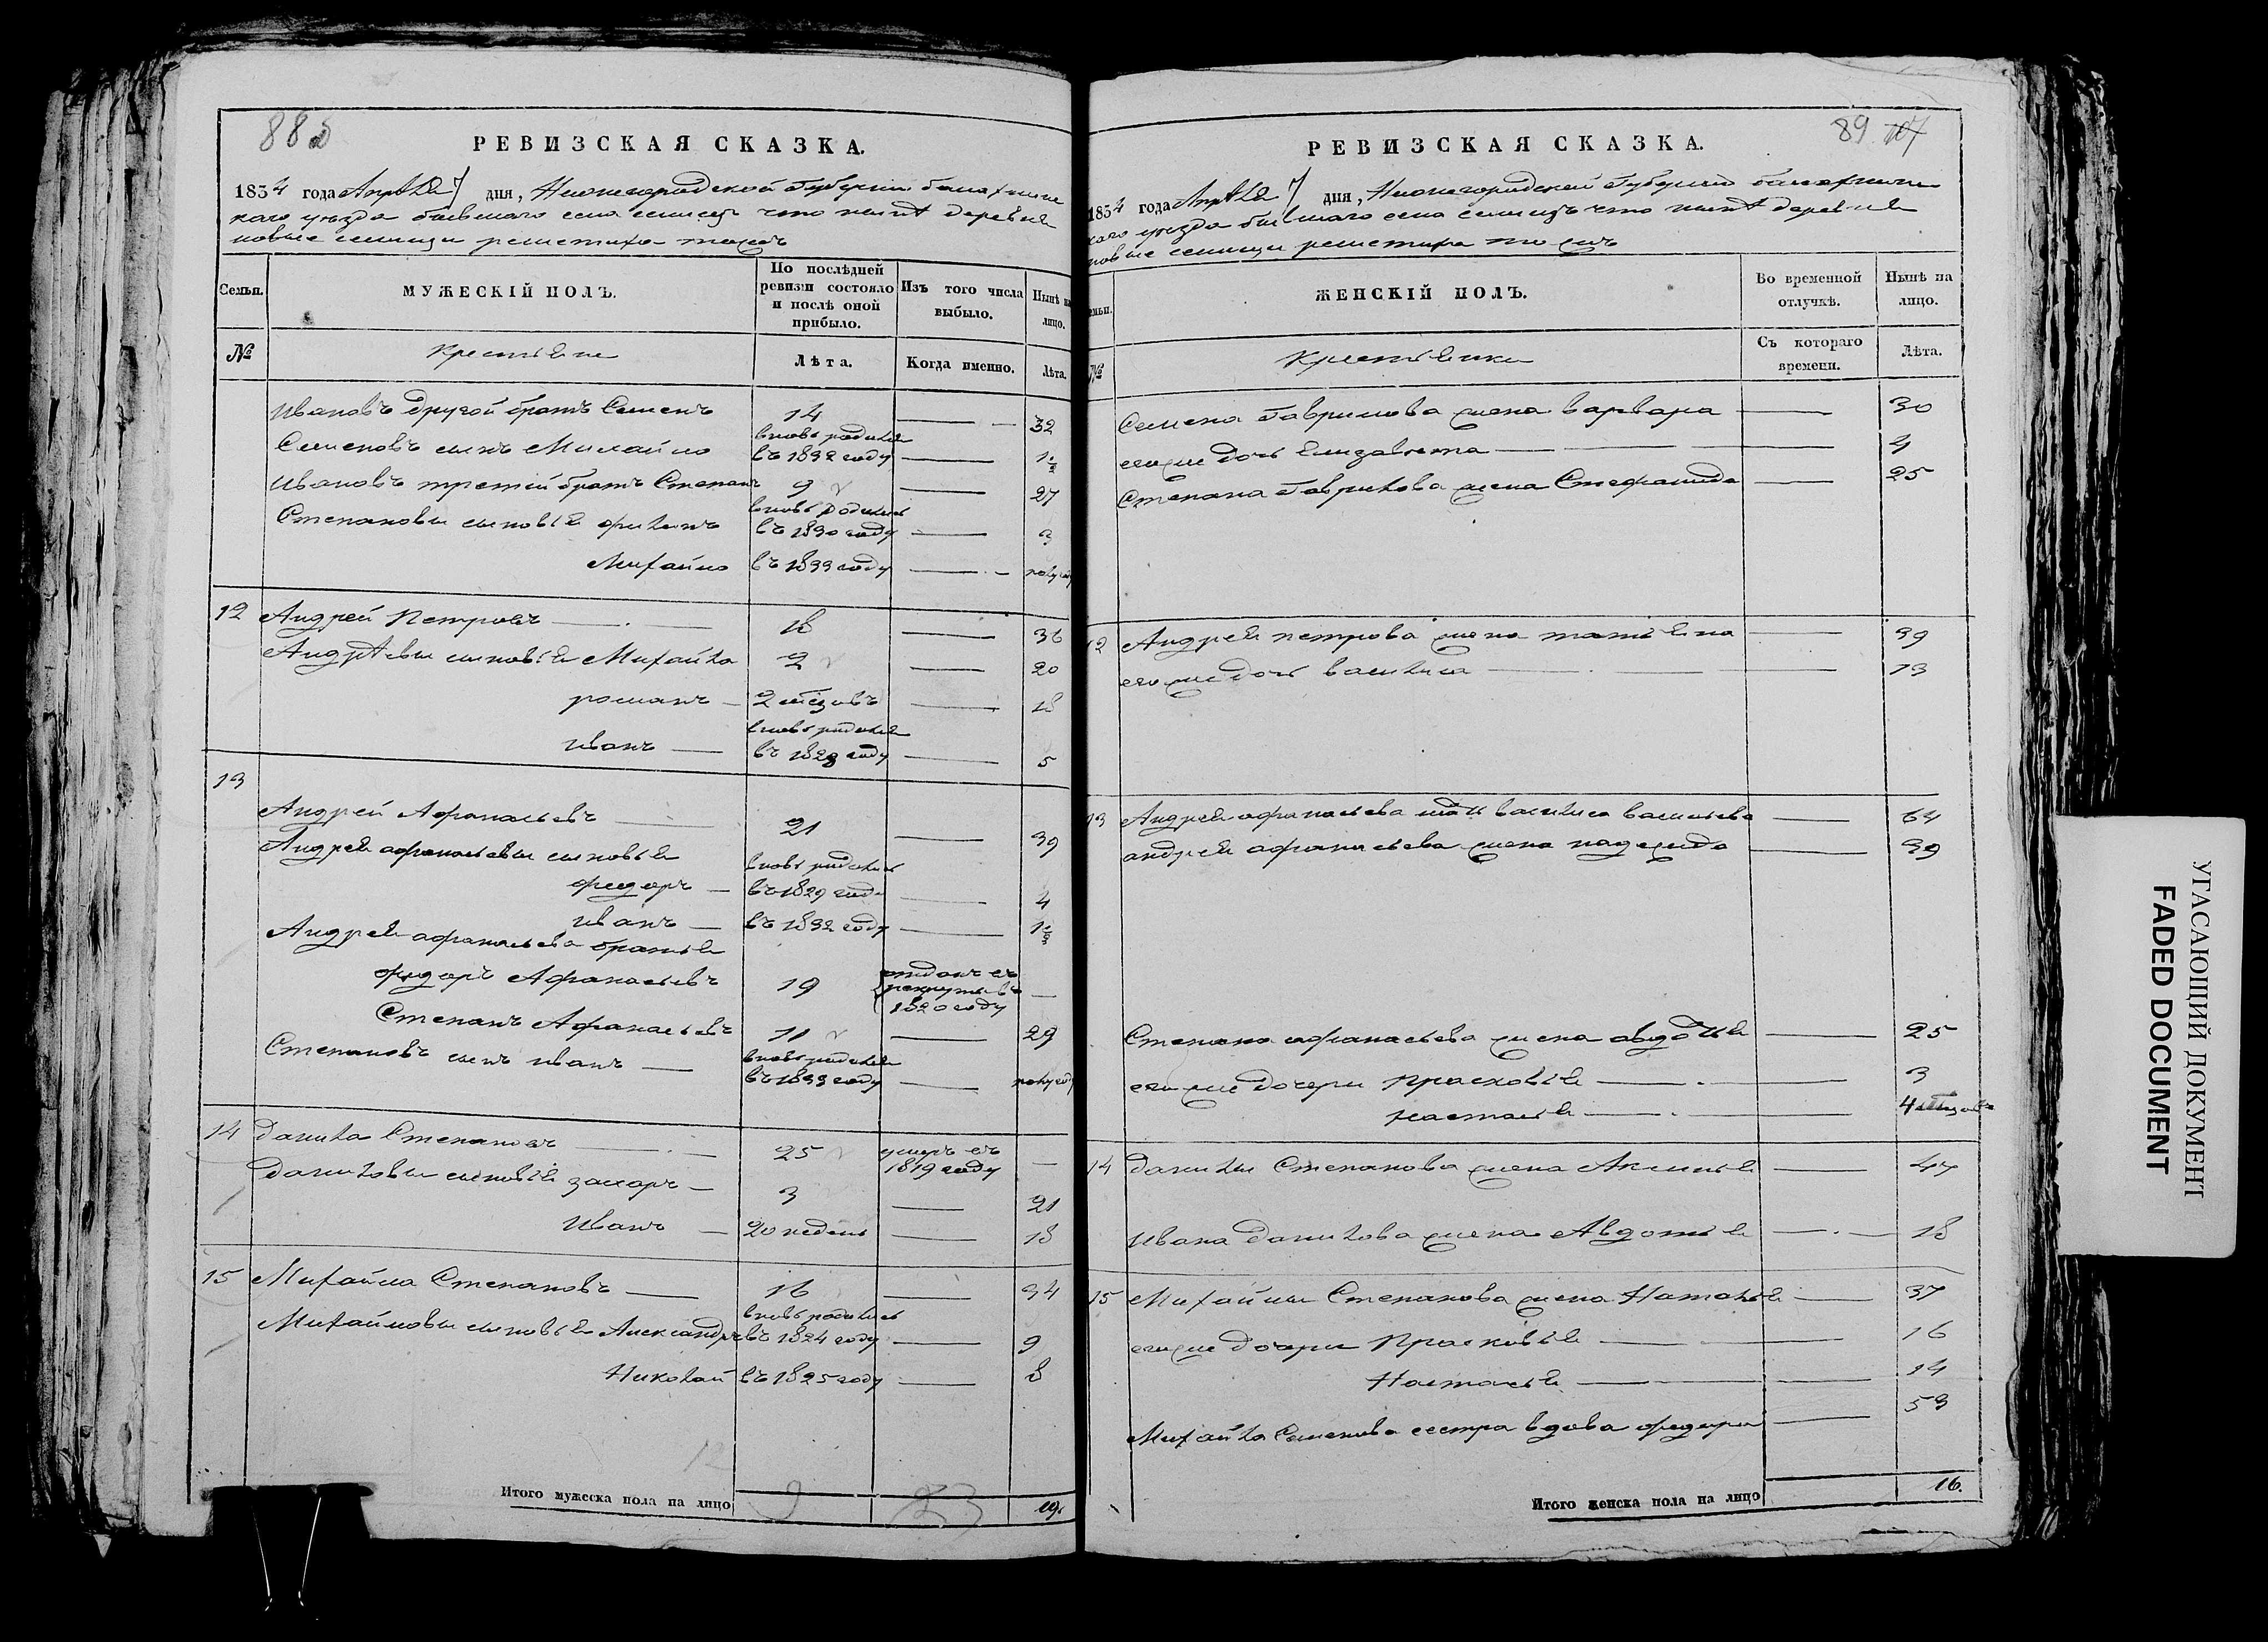 885
РЕВИЗСКАЯ СКАЗКА.
1834 года Апрѣля 7 дня, Нижегородской Губернии балахнинс
каго уѣзда бывшаго села сѣлищъ что нынѣ деревня
новые селищи решетиха тожъ
Семьи.
МУЖЕСКІЙ ПОЛЪ.
По послѣдней ревизіи состояло и послѣ оной прибыло.
Изъ того числа выбыло.
Нынѣ на лицо.
№
Крестьяне
Лѣта.
Когда именно.
Лѣта.
Ивановъ другой братъ Семенъ 14 32
вновь родился
Семеновъ сынъ Михайло въ 1832 году 1½
Ивановъ третій братъ Степанъ 9 27
вновь родились
Степановы сыновья филипъ въ 1830 году 3
Михайло въ 1833 году полугода
12 Андрей Петровъ 18 36
Андрѣевы сыновья Михайла 2 20
романъ 2 мѣсяцовъ 18
вновь родился
иванъ въ 1828 году 5
13
Андрей Афонасьевъ 21 39
Андрея афонасьевы сыновья
вновь родились
федоръ въ 1829 году 4
иванъ въ 1832 году 1½
Андрея афонасьева братья
федоръ Афонасьевъ 19 отданъ въ рекруты въ 1820 году
Степанъ Афонасьевъ 11 29
вновь родился
Степановъ сынъ иванъ въ 1833 году полугода
14 Данила Степановъ 25 умеръ въ 1819 году
Даниловы сыновья захаръ 3 21
Иванъ 20 недель 18
15 Михайла Степановъ 16 34
вновь родились
Михайловы сыновья Александръ въ 1824 году 9
Николай въ 1825 году 8
12
Итого мужеска пола на лицо 9 23 19.
89 107
РЕВИЗСКАЯ СКАЗКА.
1834 года Апрѣля 7 дня, Нижегородской Губернии балахнинс
каго уѣзда бывшаго села селищъ что нынѣ деревня
новые селищи решетиха тожъ
Семьи.
ЖЕНСКІЙ ПОЛЪ.
Во временной отлучкѣ.
Нынѣ на лицо.
№
Крестьянки
Съ котораго времени.
Лѣта.
Семена Гаврилова жена варвара 30
егоже дочь Елизавета 4
Степана Гаврилова жена Стефанида 25
12 Андрея петрова жена татьяна 39
егоже дочь василиса 13
13 Андрея афонасьева мать василиса васильева 64
андрея афонасьева жена надежда 39
Степана афонасьева жена авдотья 25
егоже дочери прасковья 3
настасья 4 мѣсяцовъ
14 Данилы Степанова жена Аксинья 47
Ивана Данилова жена Авдотья 18
15 Михайлы Степанова жена Наталья 37
егоже дочери Прасковья 16
Настасья 14
Михайла Семенова сестра вдова федора 53
Итого женска пола на лицо 16.
УГАСАЮЩИЙ ДОКУМЕНТ
FADED DOCUMENT